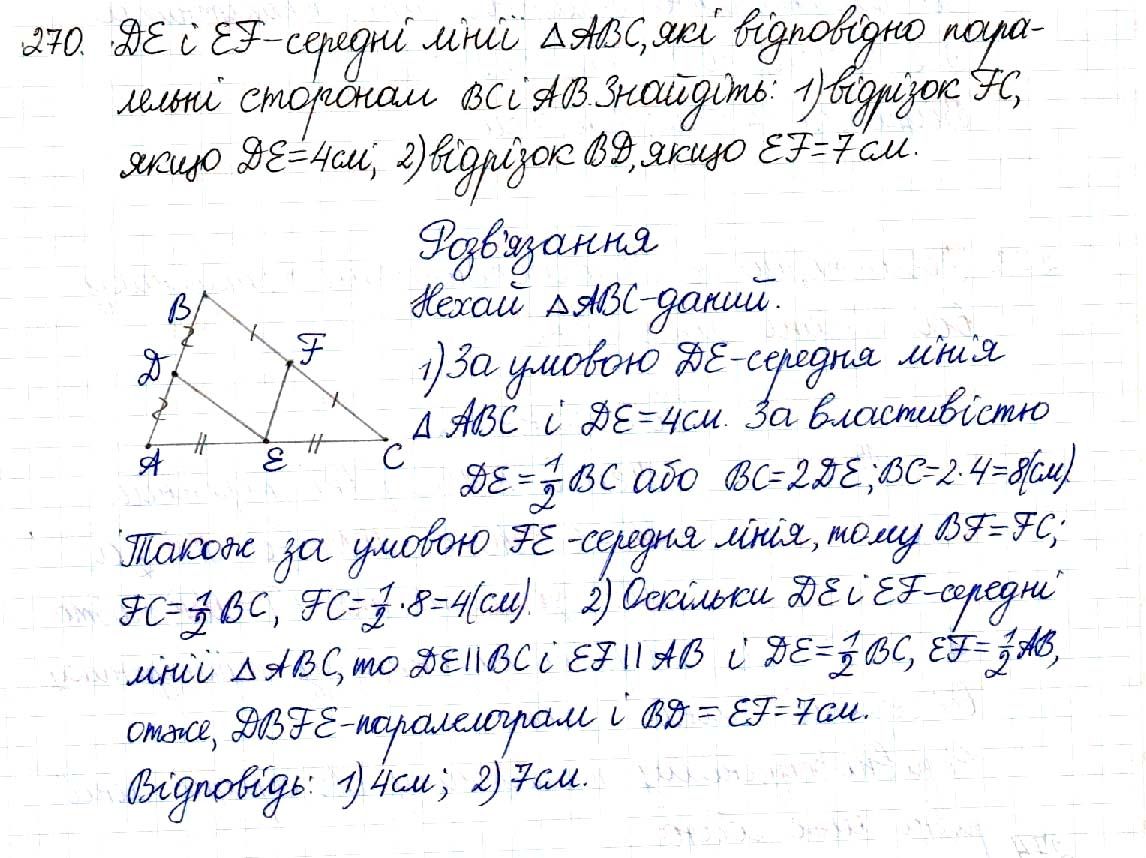 270. DE і EF-середні лінії △ABC, які відповідно пара-
лельні сторонам BC і AB. Знайдіть: 1) відрізок FC,
якщо DE=4см; 2) відрізок BD, якщо EF=7см.
Розв'язання
Нехай △ABC-даний.
B
D
F
A
E
C
1) За умовою DE-середня лінія
△ABC і DE=4см. За властивістю
DE=1/2 BC або BC=2DE; BC=2·4=8(см)
Також за умовою FE-середня лінія, тому BF=FC;
FC=1/2 BC, FC=1/2·8=4(см). 2) Оскільки DE і EF-середні
лінії △ABC, то DE||BC і EF||AB і DE=1/2 BC, EF=1/2 AB,
отже, DBFE-паралелограм і BD = EF=7см.
Відповідь: 1) 4см; 2) 7см.